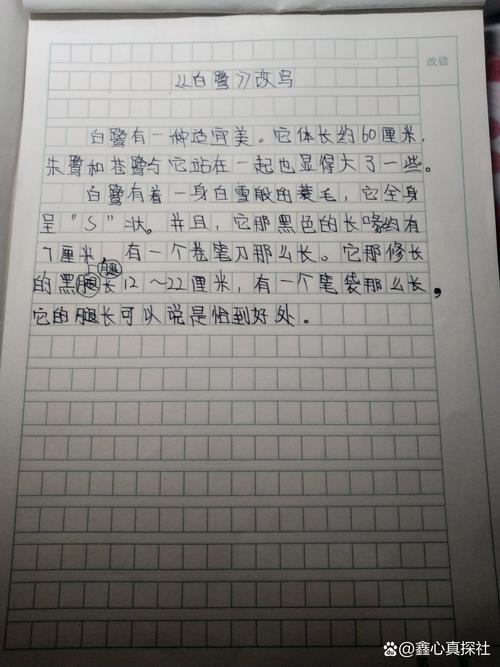 《白鹭》改写
改错
白鹭有一种适宜美。它体长约60厘米,
朱鹭和苍鹭与它站在一起也显得大了一些。
白鹭有着一身白雪般的蓑毛,它全身
呈“S”状。并且,它那黑色的长喙约有
7厘米,有一个卷笔刀那么长。它那修长
的黑腿长12~22厘米,有一个笔袋那么长,
它的腿长可以说是恰到好处。
鑫心真探社